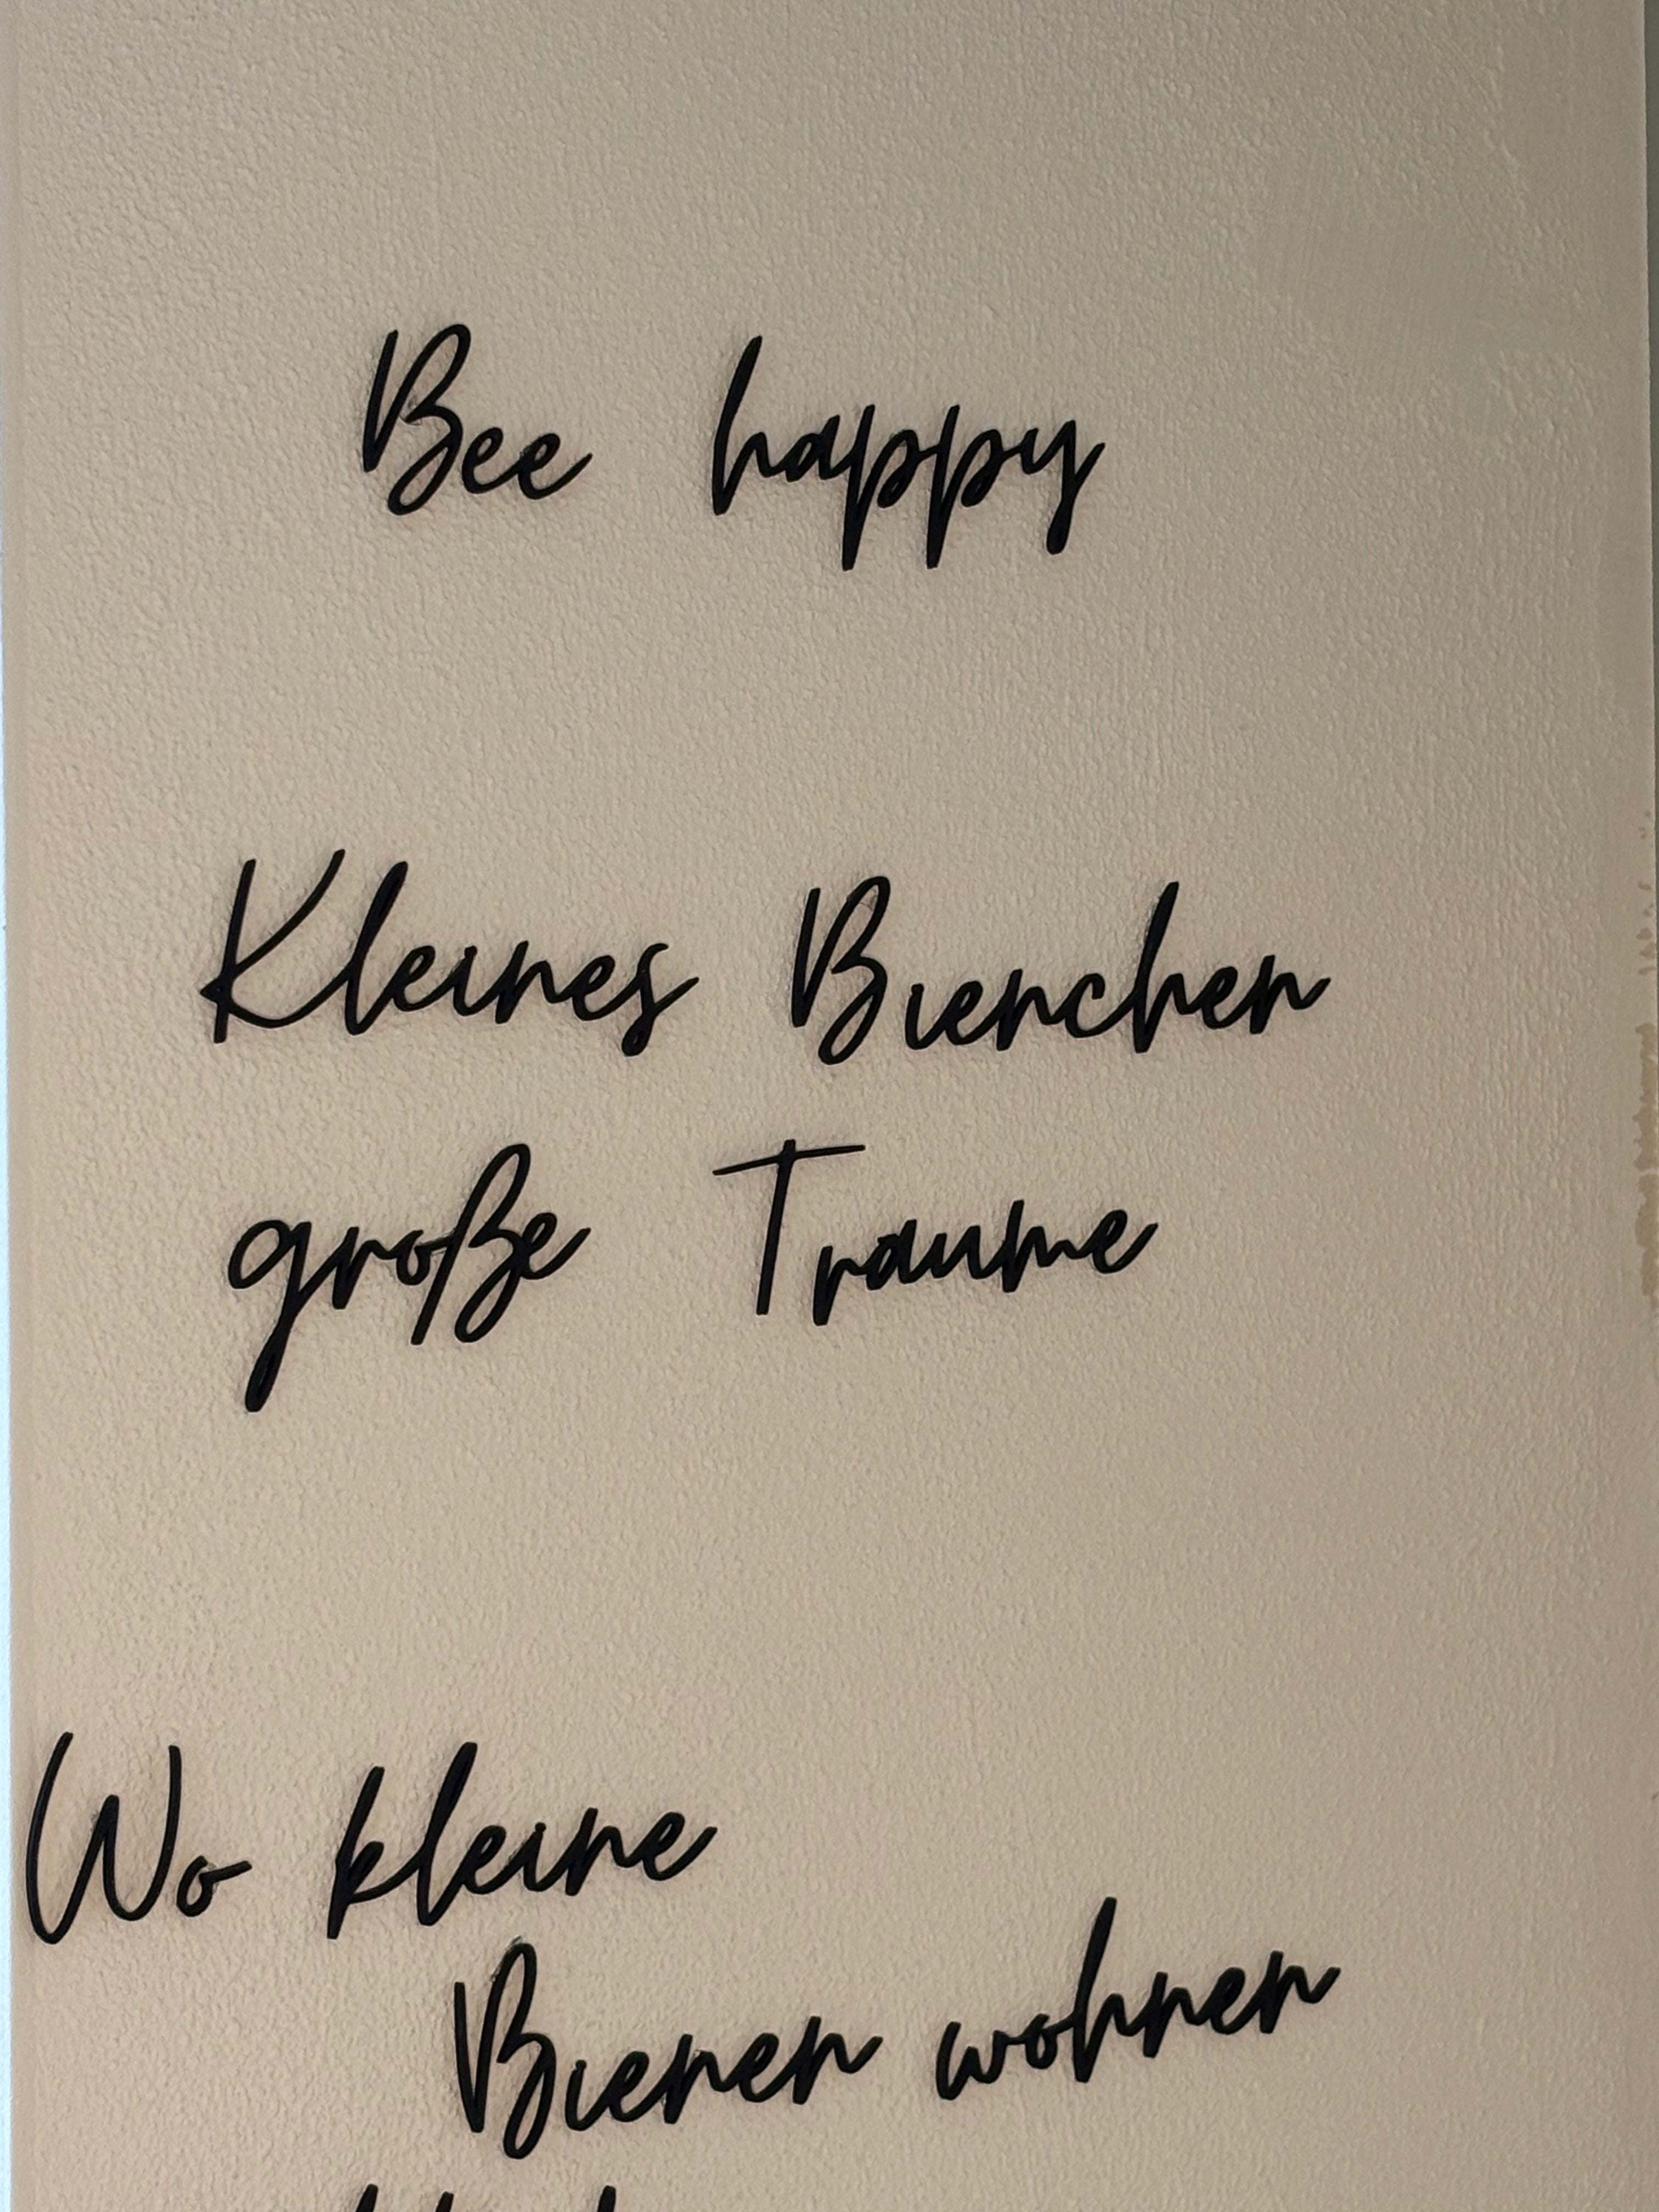 Bee happy
Kleines Bienchen
große Traume
Wo kleine
Bienen wohnen